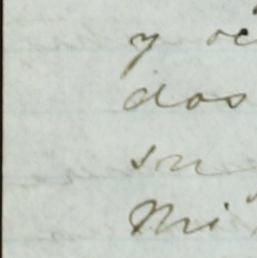 y oc
dos
su
Mi